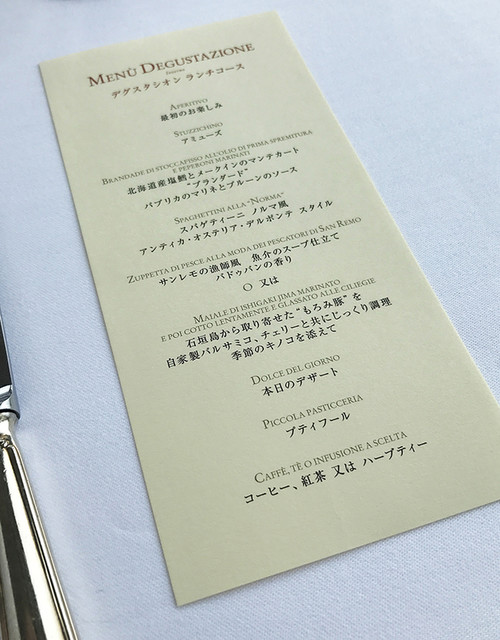 MENÙ DEGUSTAZIONE
デグスタシオン ランチコース
APERITIVO
最初のお楽しみ
STUZZICHINO
アミューズ
BRANDADE DI STOCCAFISSO ALL'OLIO DI PRIMA SPREMITURA
E PEPERONI MARINATI
北海道産塩鱈とメークインのマンテカート
"ブランダード"
パプリカのマリネとプルーンのソース
SPAGHETTINI ALLA "NORMA"
スパゲティーニ ノルマ風
アンティカ・オステリア・デルポンテ スタイル
ZUPPETTA DI PESCE ALLA MODA DEI PESCATORI DI SAN REMO
サンレモの漁師風 魚介のスープ仕立て
バドゥバンの香り
O 又は
MAIALE DI ISHIGAKI JIMA MARINATO
E POI COTTO LENTAMENTE E GLASSATO ALLE CILIEGIE
石垣島から取り寄せた "もろみ豚" を
自家製バルサミコ、チェリーと共にじっくり調理
季節のキノコを添えて
DOLCE DEL GIORNO
本日のデザート
PICCOLA PASTICCERIA
プティフール
CAFFÈ, TÈ O INFUSIONE A SCELTA
コーヒー、紅茶 又は ハーブティー